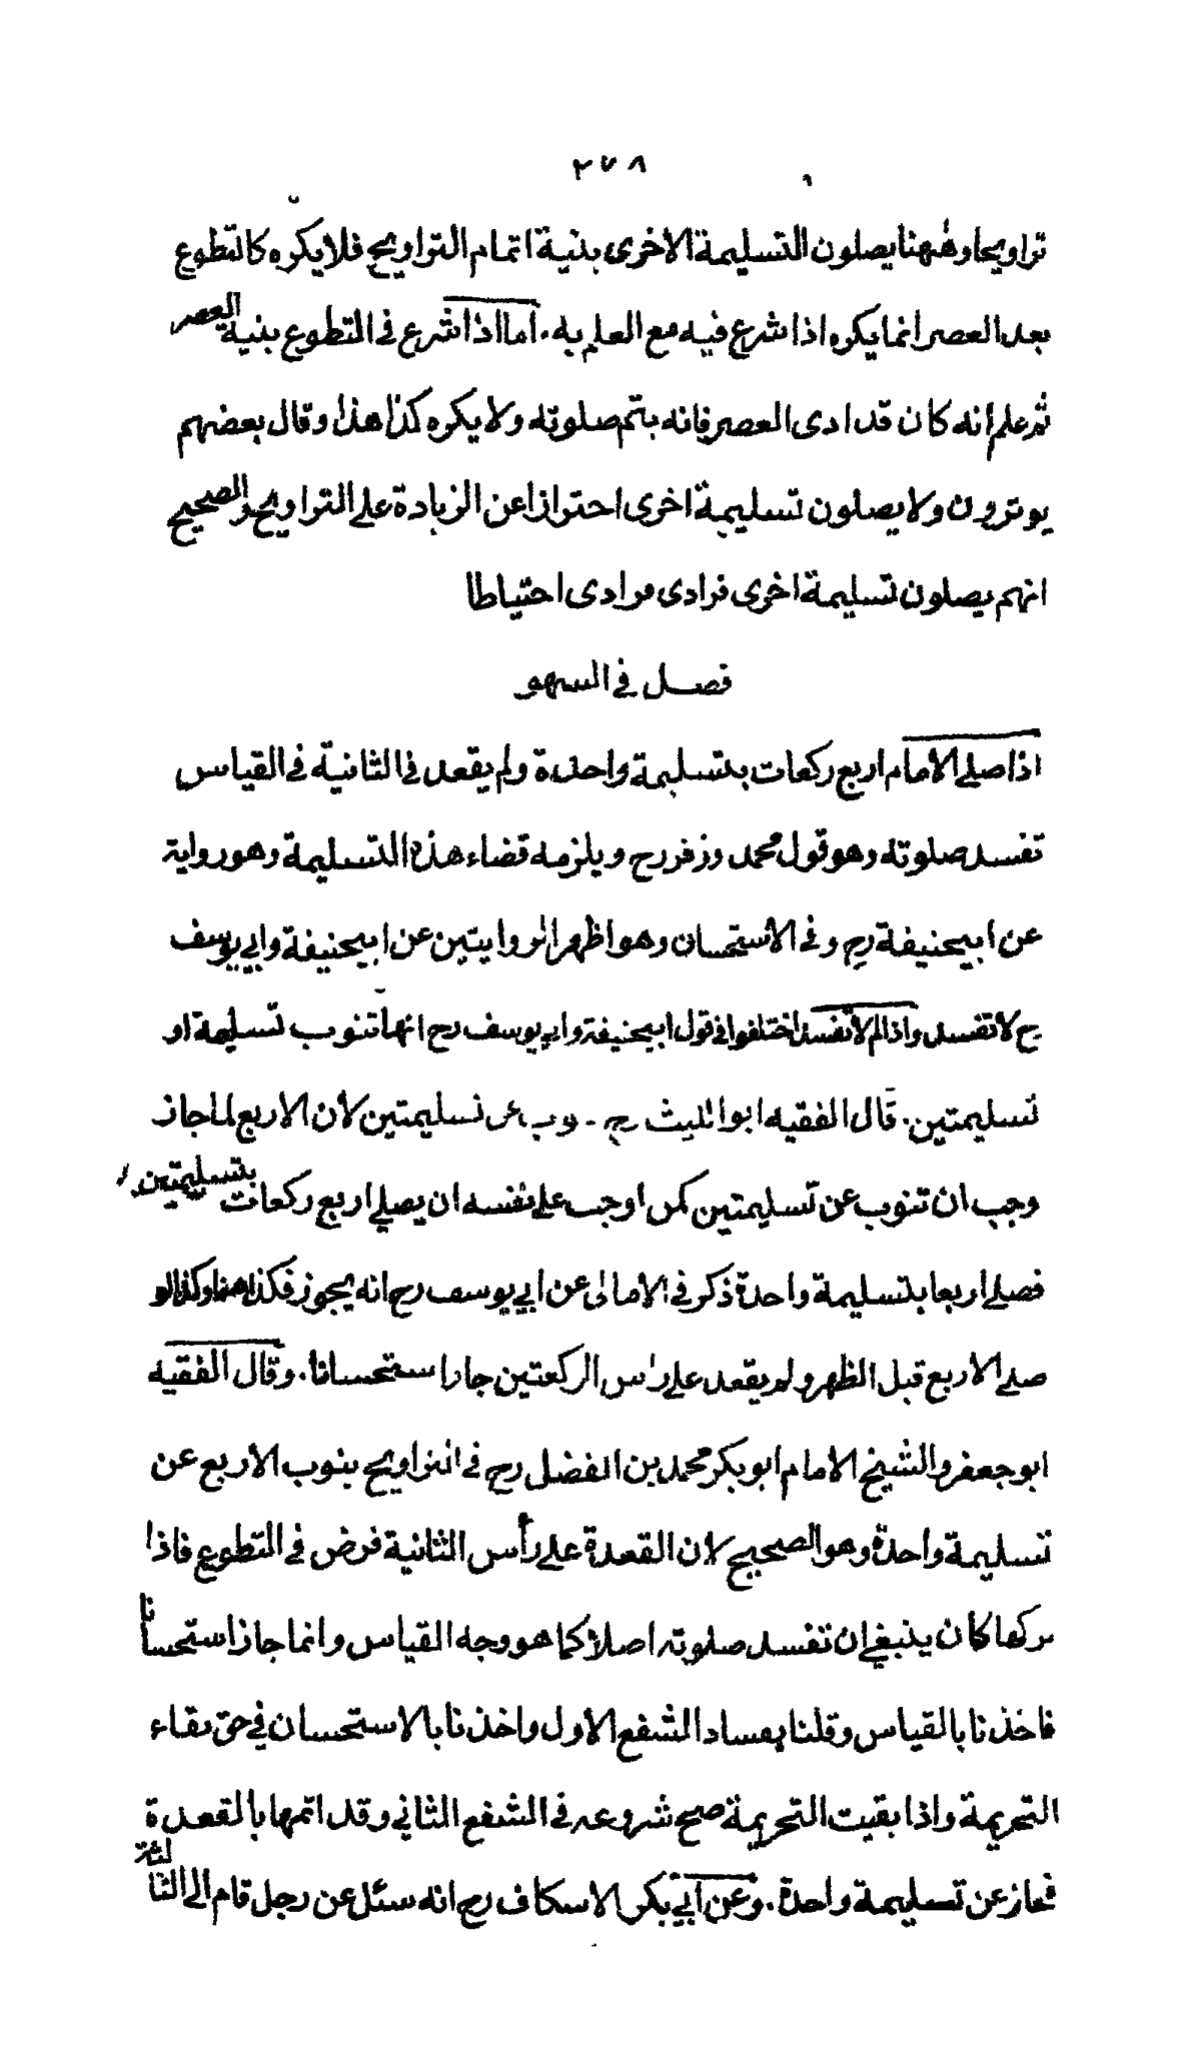 ٢٧٨
تراويحا وههنا يصلون التسليمة الاخرى بنية اتمام التراويح فلا يكره كالتطوع
بعد العصر انما يكره اذا شرع فيه مع العلم به . اما اذا شرع في التطوع بنية العصر
ثم علم أنه كان قد ادى العصر فانه يتم صلوته ولا يكره كذا هذا وقال بعضهم
يوترون ولا يصلون تسليمة اخرى احترازا عن الزيادة على التراويح والصحيح
انهم يصلون تسليمة اخرى فرادى فرادى احتياطا
فصل في السهو
اذا صلى الامام اربع ركعات بتسليمة واحدة ولم يقعد في الثانية في القياس
تفسد صلوته وهو قول محمد وزفر رح ويلزمه قضاء هذه التسليمة وهو رواية
عن ابيحنيفة رح وفي الاستحسان وهو اظهر الروايتين عن ابيحنيفة وابي يوسف
رح لا تفسد واذا لم لا تفسد اختلفوا في قول ابيحنيفة وابي يوسف رح انها تنوب تسليمة او
تسليمتين . قال الفقيه ابو الليث رح عن تسليمتين لان الاربع لما جاز
وجب ان تنوب عن تسليمتين كمن اوجب على نفسه ان يصلي اربع ركعات بتسليمتين
فصلى اربعا بتسليمة واحدة ذكر في الامالى عن ابي يوسف رح انه يجوز فكذا هنا وكذا لو
صلى الاربع قبل الظهر ولم يقعد على رأس الركعتين جازا ستحسانا . وقال الفقيه
ابو جعفر والشيخ الامام ابو بكر محمد بن الفضل رح في التراويح ينوب الاربع عن
تسليمة واحدة وهو الصحيح لان القعدة على رأس الثانية فرض في التطوع فاذا
تركها كان ينبغي ان تفسد صلوته اصلا كما هو وجه القياس وانما جاز استحسانا
فاخذنا بالقياس وقلنا بفساد الشفع الاول واخذنا بالاستحسان في حق بقاء
التحريمة واذا بقيت التحريمة صح شروعه في الشفع الثاني وقد اتمها بالقعدة
فجاز عن تسليمة واحدة . وعن ابي بكر الاسكاف رح انه سئل عن رجل قام الى الثالثة